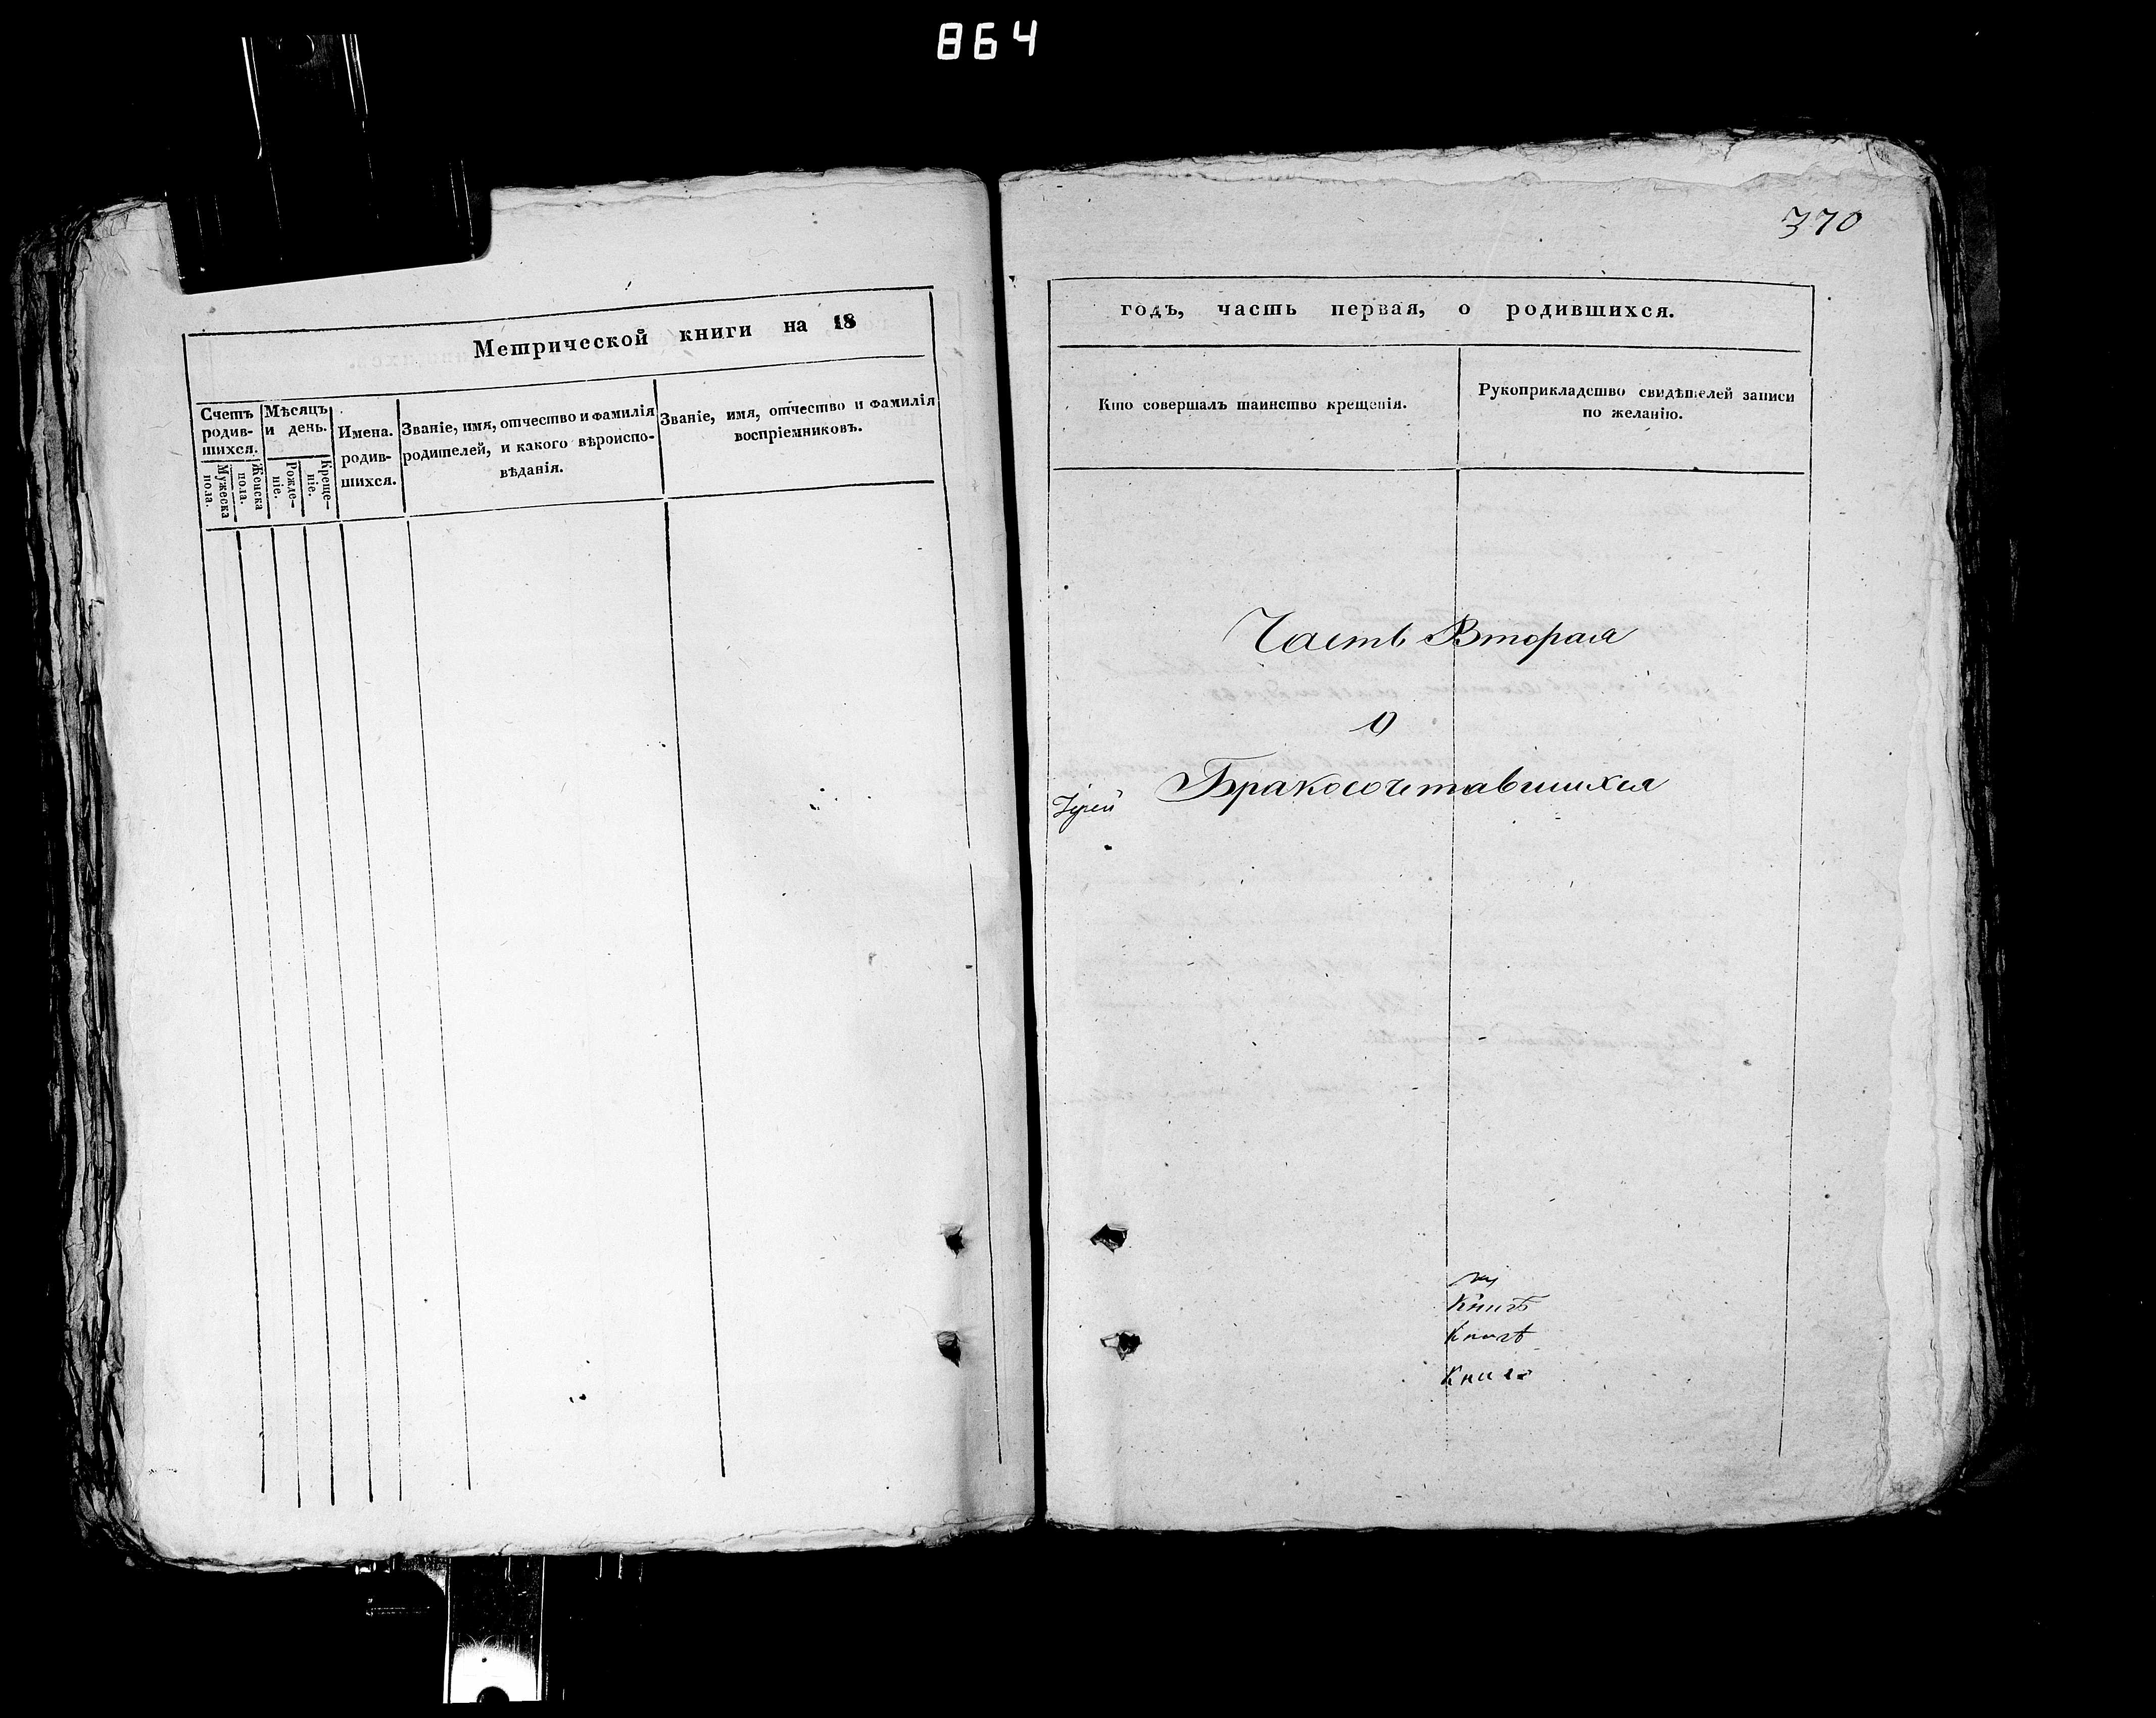 864
370
Метрической книги на 18
Счетъ родив-шихся.
Мужеска пола.
Женска пола.
Мѣсяцъ и день.
Рожде-ніе.
Креще-ніе.
Имена. родив-шихся.
Званіе, имя, отчество и фамилія
родителей, и какого вѣроиспо-
вѣданія.
Званіе, имя, отчество и фамилія
воспріемниковъ.
годъ, часть первая, о родившихся.
Кто совершалъ таинство крещенія.
Рукоприкладство свидѣтелей записи
по желанію.
Часть Вторая
О
Бракосочетавшихся
Іерей
Книгѣ
Книгѣ
Книгѣ